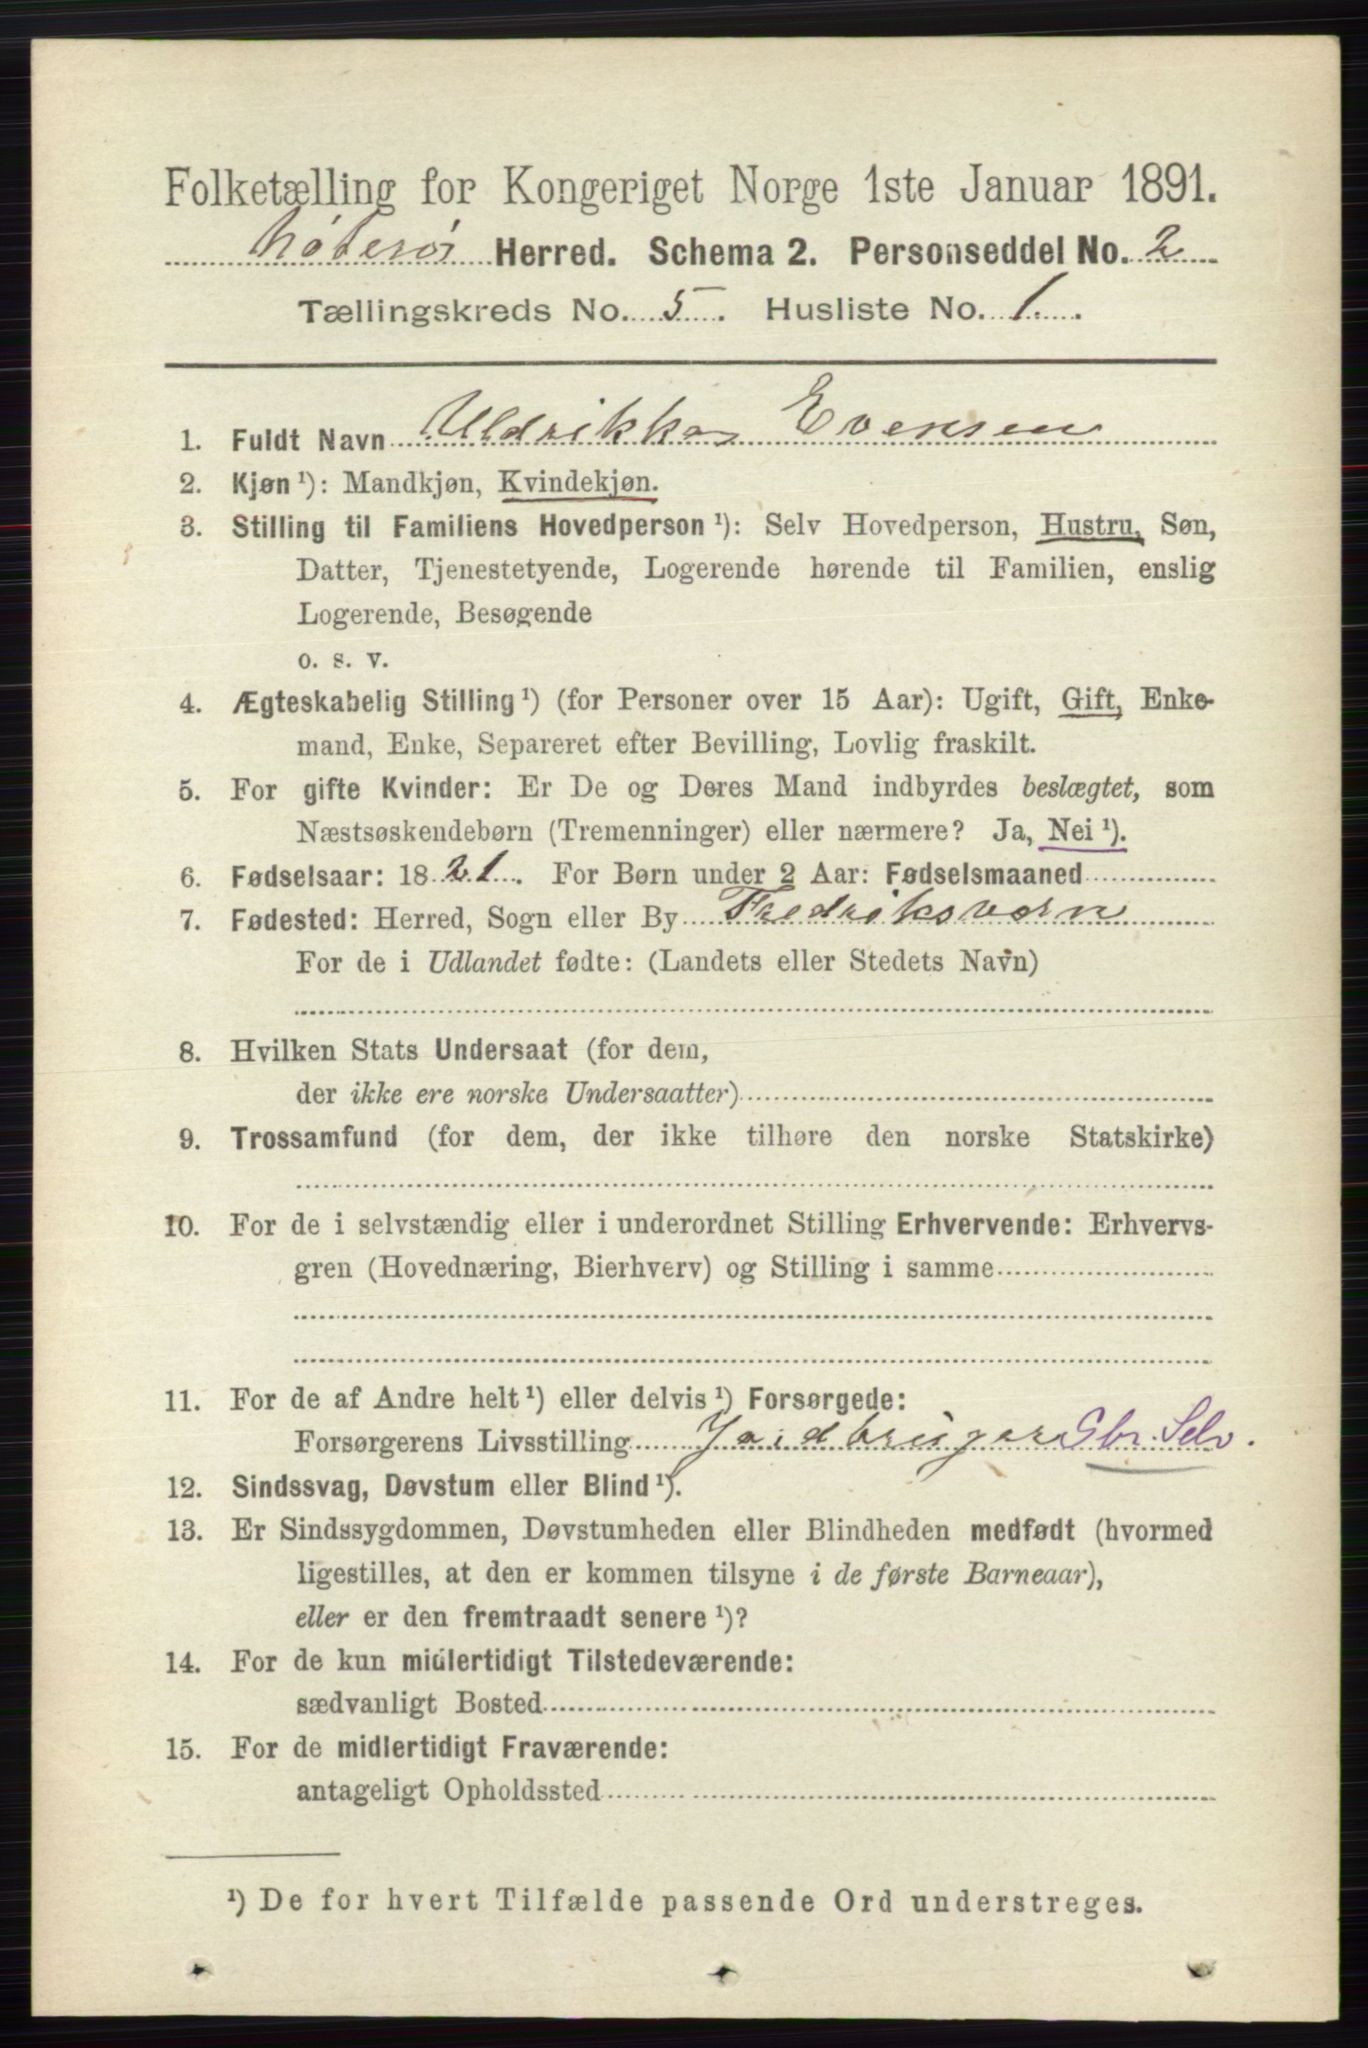 Folketælling for Kongeriget Norge 1ste Januar 1891.
Nøterø Herred. Schema 2. Personseddel No. 2
Tællingskreds No. 5. Husliste No. 1.
1. Fuldt Navn Uldrikka Evensen
2. Kjøn ¹): Mandkjøn, Kvindekjøn.
3. Stilling til Familiens Hovedperson ¹): Selv Hovedperson, Hustru, Søn,
Datter, Tjenestetyende, Logerende hørende til Familien, enslig
Logerende, Besøgende
o. s. v.
4. Ægteskabelig Stilling ¹) (for Personer over 15 Aar): Ugift, Gift, Enke-
mand, Enke, Separeret efter Bevilling, Lovlig fraskilt.
5. For gifte Kvinder: Er De og Deres Mand indbyrdes beslægtet, som
Næstsøskendebørn (Tremenninger) eller nærmere? Ja, Nei ¹).
6. Fødselsaar: 1821. For Børn under 2 Aar: Fødselsmaaned
7. Fødested: Herred, Sogn eller By Fredriksværn
For de i Udlandet fødte: (Landets eller Stedets Navn)
8. Hvilken Stats Undersaat (for dem,
der ikke ere norske Undersaatter)
9. Trossamfund (for dem, der ikke tilhøre den norske Statskirke)
10. For de i selvstændig eller i underordnet Stilling Erhvervende: Erhvervs-
gren (Hovednæring, Bierhverv) og Stilling i samme
11. For de af Andre helt ¹) eller delvis ¹) Forsørgede:
Forsørgerens Livsstilling Jordbruger Gbr. Selv.
12. Sindssvag, Døvstum eller Blind ¹).
13. Er Sindssygdommen, Døvstumheden eller Blindheden medfødt (hvormed
ligestilles, at den er kommen tilsyne i de første Barneaar),
eller er den fremtraadt senere ¹)?
14. For de kun midlertidigt Tilstedeværende:
sædvanligt Bosted
15. For de midlertidigt Fraværende:
antageligt Opholdssted
¹) De for hvert Tilfælde passende Ord understreges.